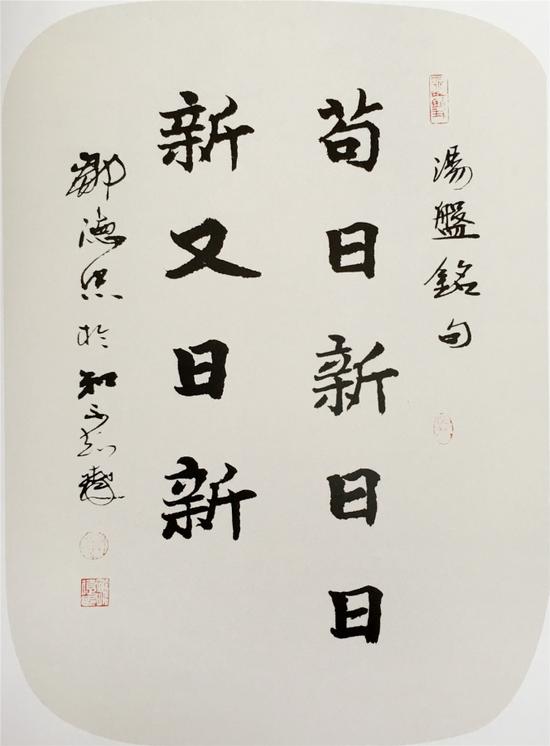 湯盤銘句
苟日新日日
新又日新
鄧德 於知不